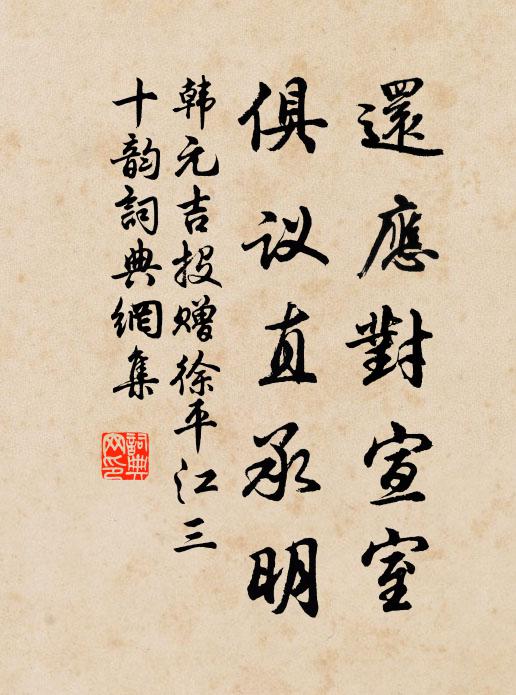 還應對宣室
俱议直承明
韩元吉投赠徐平江三
十韵詞典網集
詞典
网印